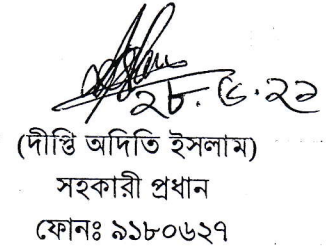 ২৮.৬.২১
(দীপ্তি অদিতি ইসলাম)
সহকারী প্রধান
ফোনঃ ৯১৮০৬২৭